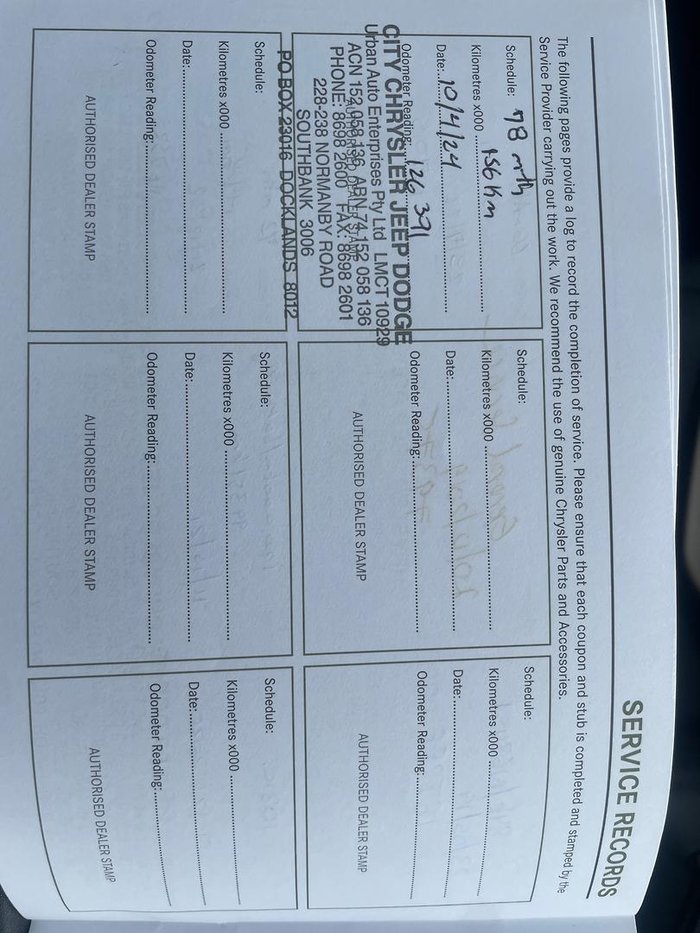 SERVICE RECORDS
The following pages provide a log to record the completion of service. Please ensure that each coupon and stub is completed and stamped by the
Service Provider carrying out the work. We recommend the use of genuine Chrysler Parts and Accessories.
Schedule: 78 mth
Kilometres x000 156 Km
Date: 10/4/24
Odometer Reading: 126 391
CITY CHRYSLER JEEP DODGE
Urban Auto Enterprises Pty Ltd LMCT 10929
ACN 152 058 136 ABN 74 152 058 136
PHONE: 8698 2600 FAX: 8698 2601
228-238 NORMANBY ROAD
SOUTHBANK 3006
PO BOX 23016 DOCKLANDS 8012
Schedule:
Kilometres x000
Date:
Odometer Reading:
AUTHORISED DEALER STAMP
Schedule:
Kilometres x000
Date:
Odometer Reading:
AUTHORISED DEALER STAMP
Schedule:
Kilometres x000
Date:
Odometer Reading:
AUTHORISED DEALER STAMP
Schedule:
Kilometres x000
Date:
Odometer Reading:
AUTHORISED DEALER STAMP
Schedule:
Kilometres x000
Date:
Odometer Reading:
AUTHORISED DEALER STAMP